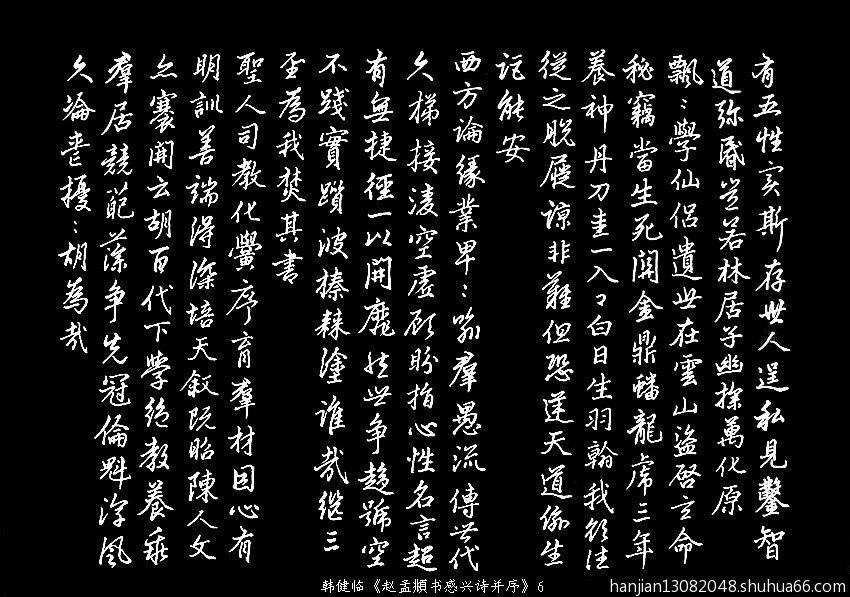 有五性實斯存世人逞私見鑿智
道弥昏豈若林居子幽探萬化原
飄〻學仙侶遺世在雲山盜啓玄命
秘竊當生死関金鼎蟠龍虎三年
養神丹刀圭一入口白日生羽翰我欲往
從之脫屣諒非難但恐逆天道偷生
詎能安
西方論緣業卑〻喻羣愚流傳世代
久梯接凌空虛顾盼指心性名言超
有無捷徑一以開靡然世争趨號空
不踐實躓彼榛棘塗誰哉繼三
聖為我焚其書
聖人司教化黌序育羣材因心有
明訓善端得深培天叙既昭陳人文
亦褰開云胡百代下學絕教養乖
羣居競葩藻争先冠倫魁淳風
久淪喪擾〻胡為哉
韩健临《赵孟頫书感兴诗并序》6
hanjian13082048.shuhua66.com